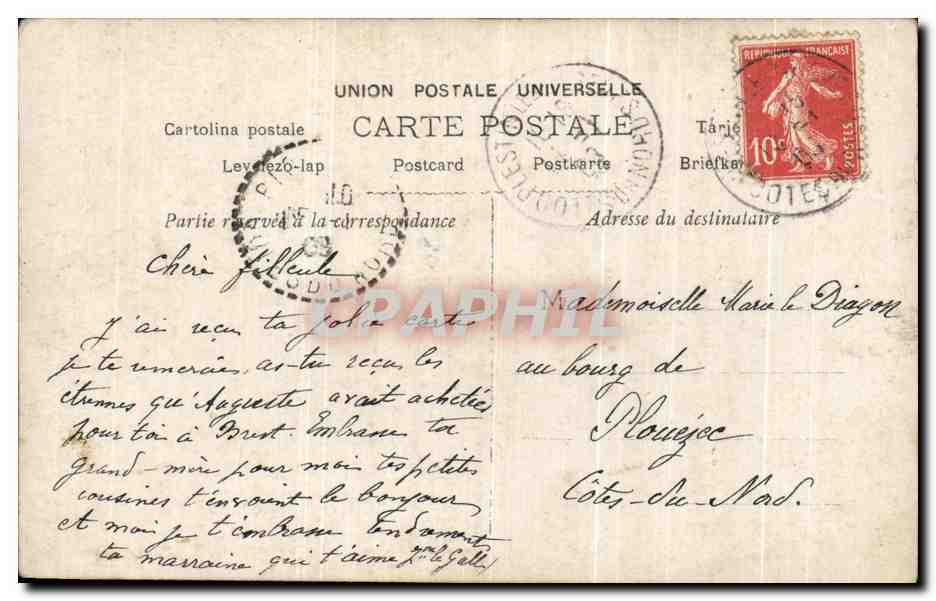 UNION POSTALE UNIVERSELLE
CARTE POSTALE
Cartolina postale
Levelező-lap Postcard Postkarte Briefka
Partie réservée à la correspondance
Adresse du destinataire
REPUBLIQUE FRANÇAISE
10c
POSTES
CPAPHIL
Chère filleule
J'ai reçus ta jolie carte
je te remercies, as-tu reçus les
étrennes qu'Auguste avait achetées
pour toi à Brest. Embrasse ta
grand-mère pour moi tes petites
cousines t'envoient le bonjour
et moi je t'embrasse tendrement
ta marraine qui t'aime Yme le Gall
Mademoiselle Marie le Diagon
au bourg de
Plouézec
Côtes-du-Nord.